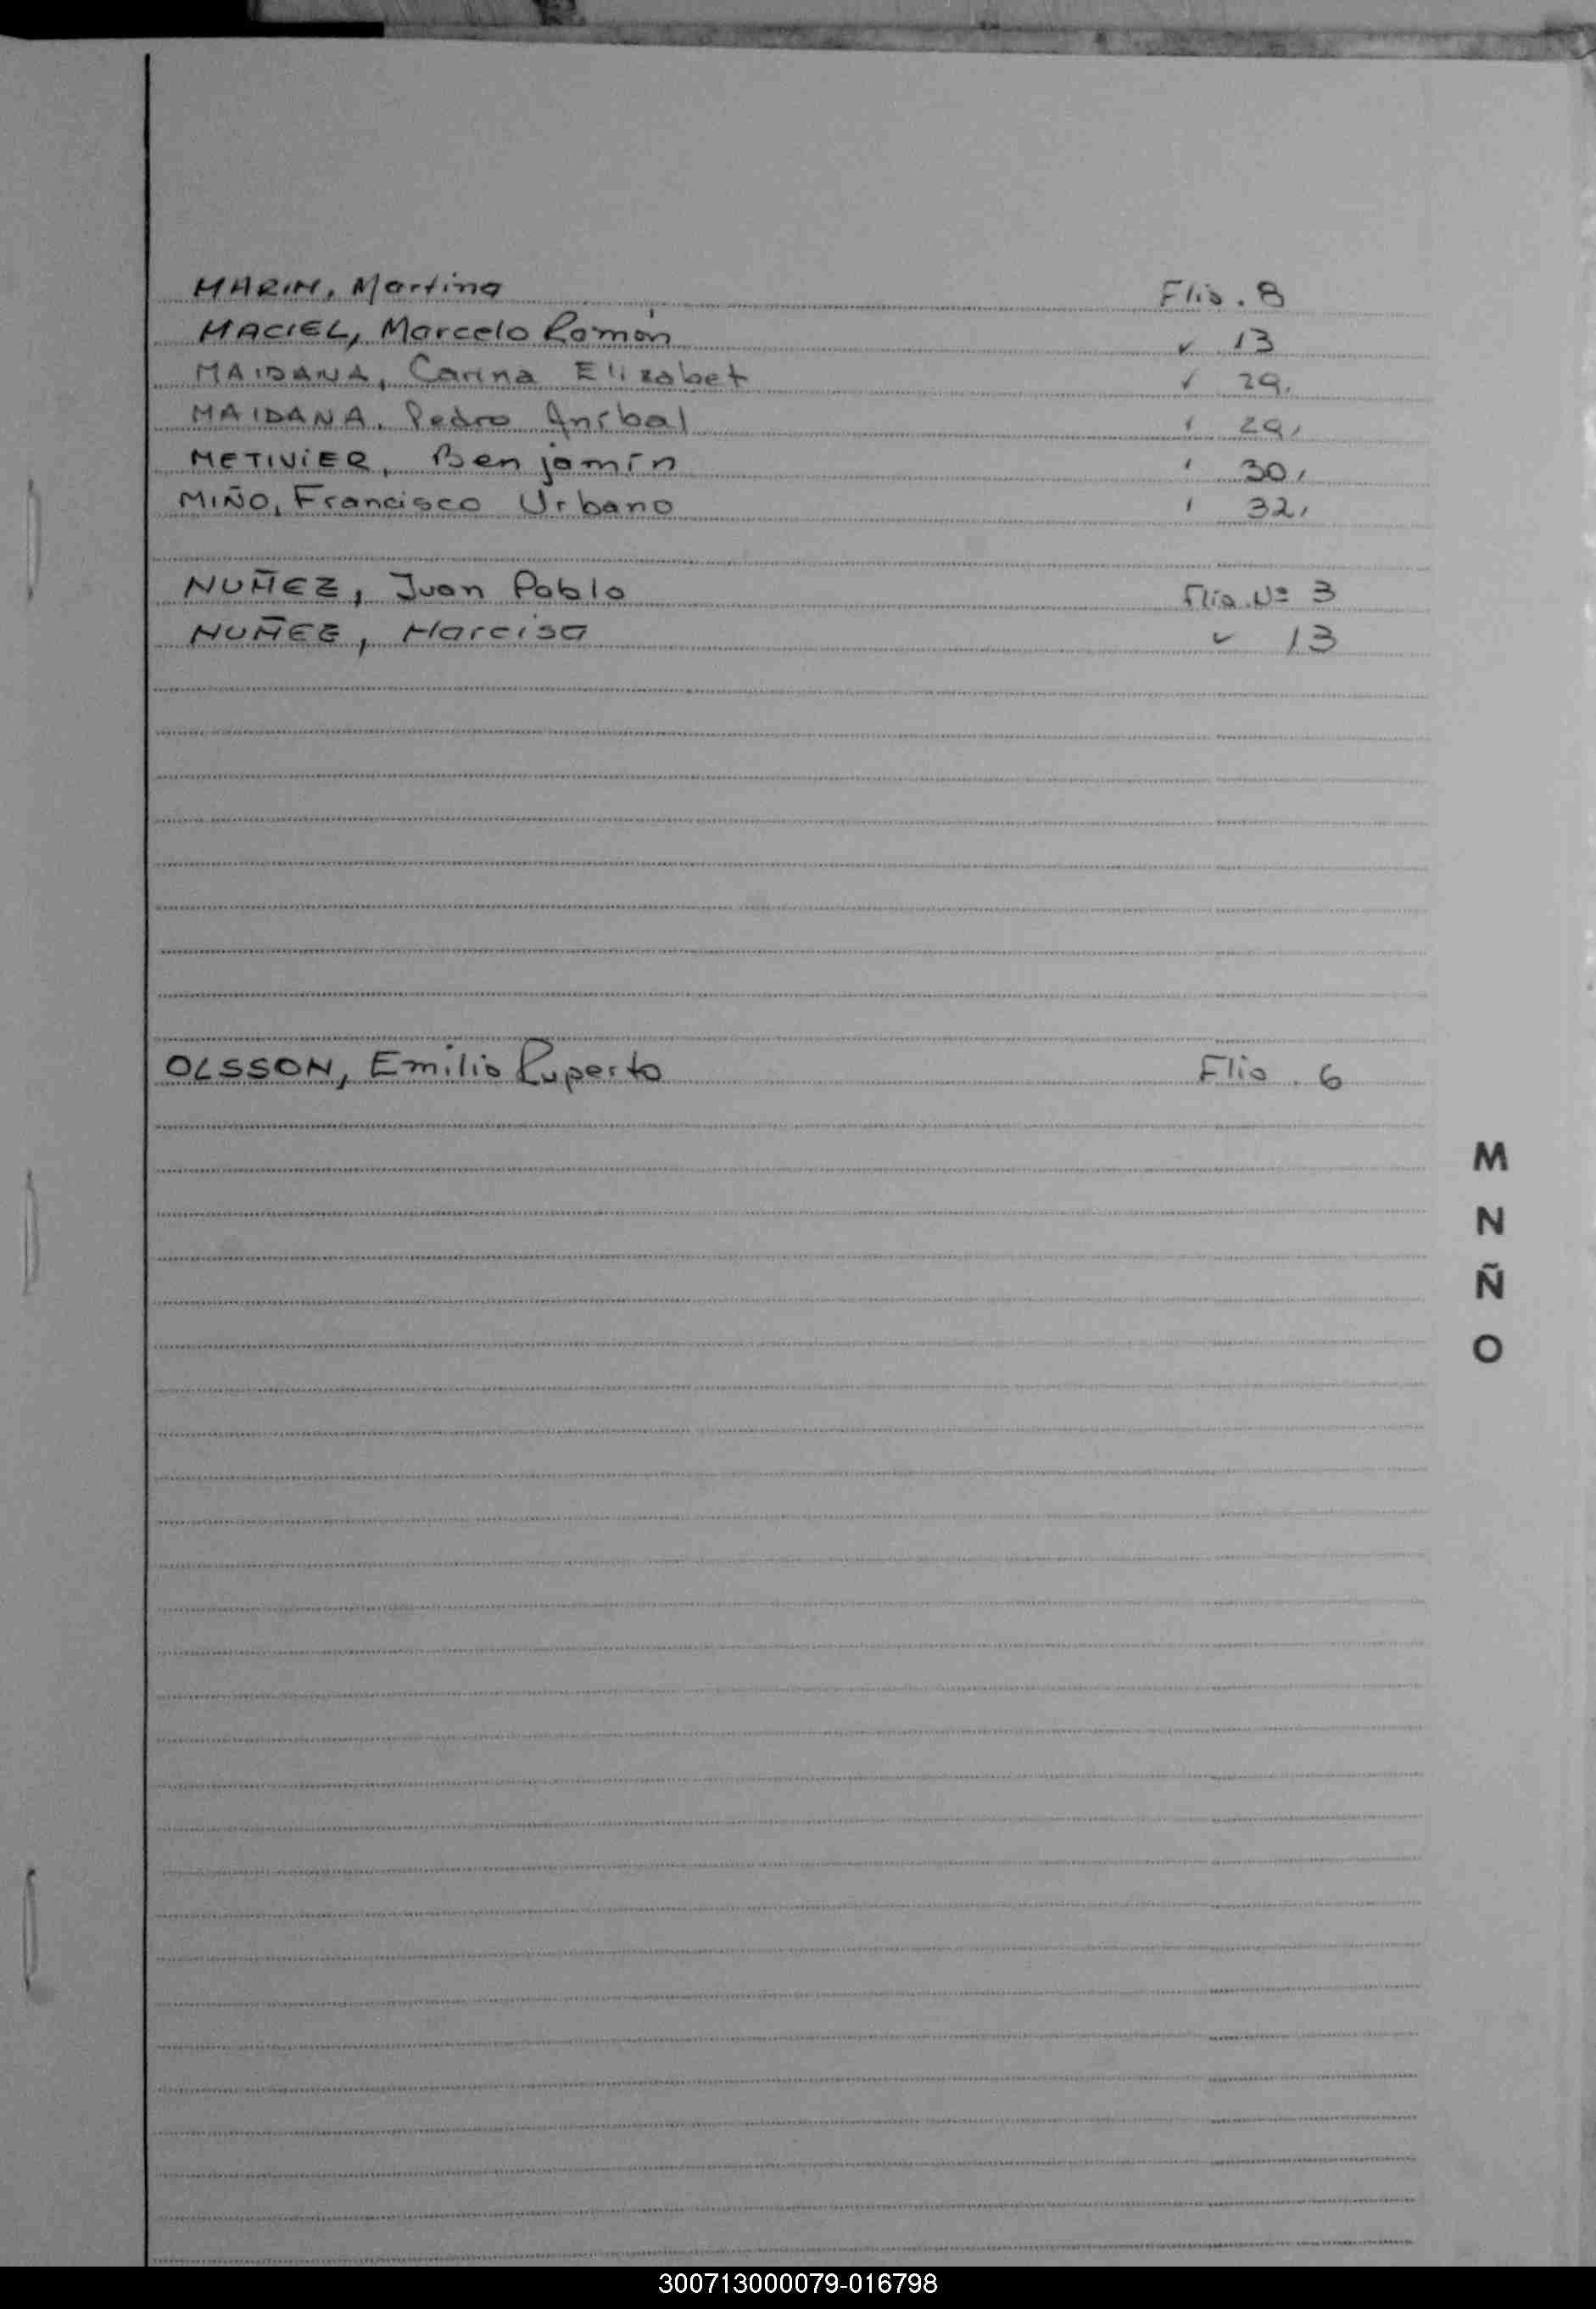 MARIN, Martina Flio. 8
MACIEL, Marcelo Ramón " 13
MAIDANA, Carina Elizabet " 29.
MAIDANA, Pedro Aníbal " 29,
METIVIER, Benjamín " 30,
MIÑO, Francisco Urbano " 32,
NUÑEZ, Juan Pablo Flio. Nº 3
NUÑEZ, Narcisa " 13
OLSSON, Emilio Ruperto Flio. 6
M
N
Ñ
O
300713000079-016798